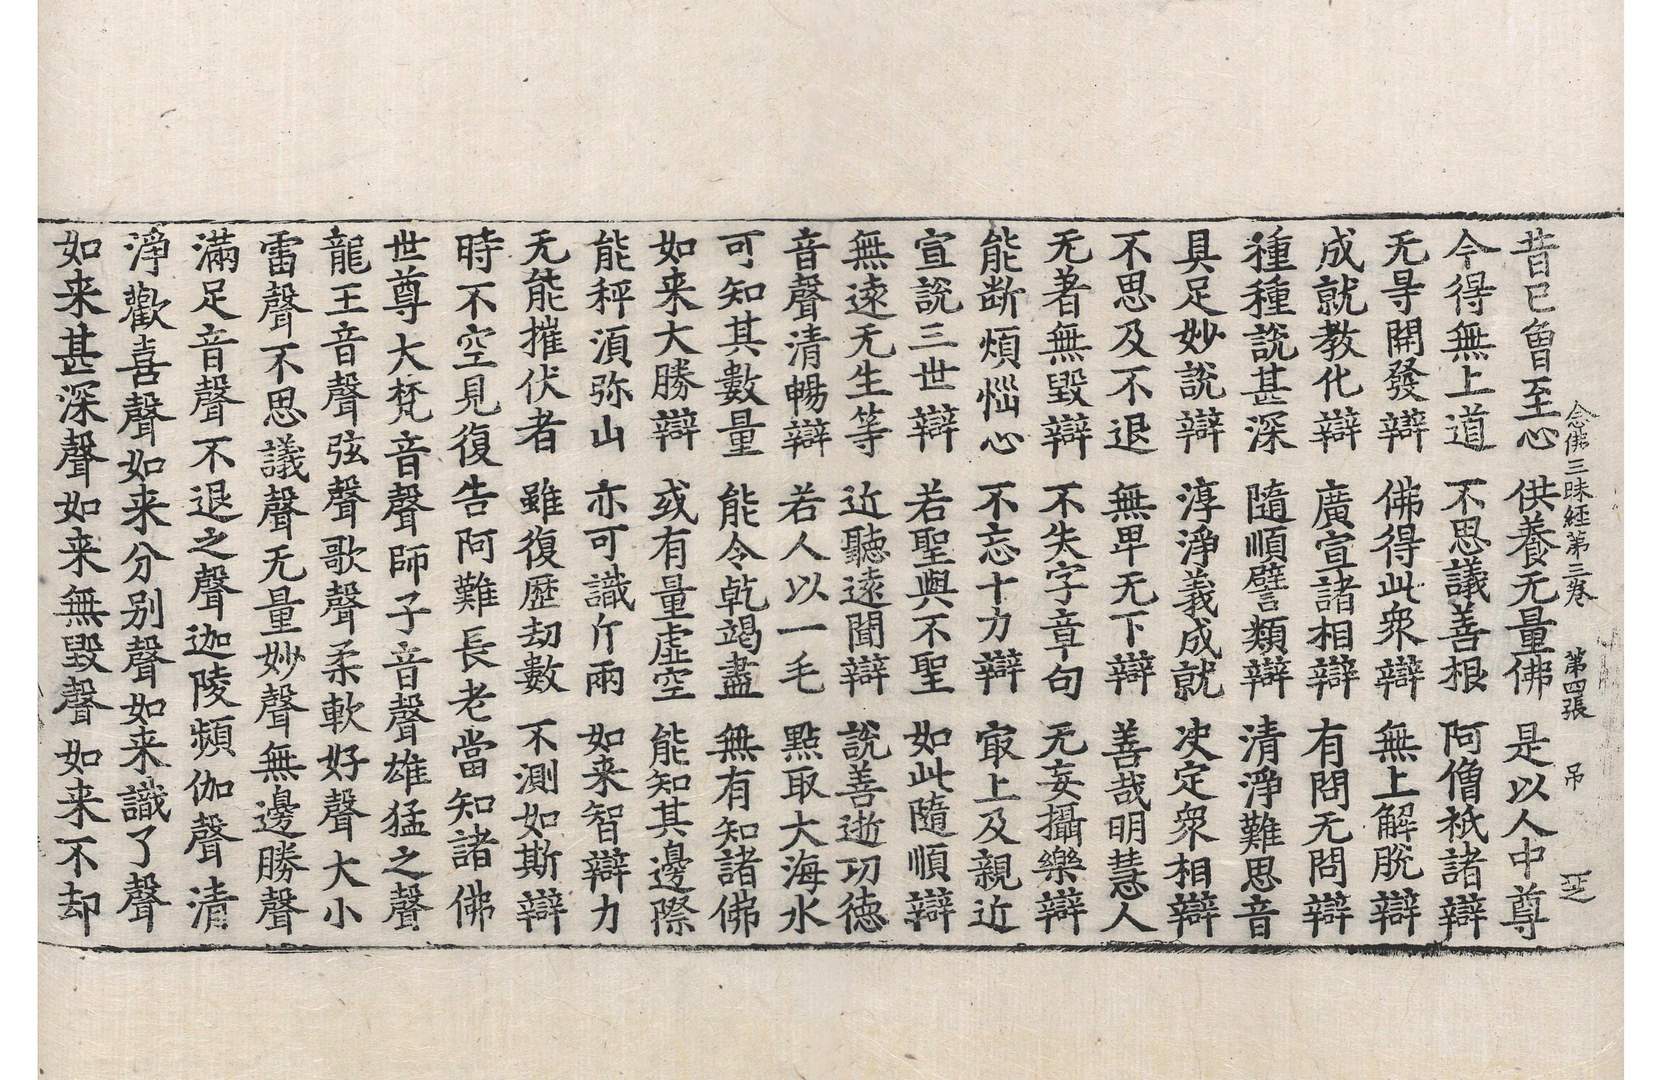 念佛三昧經第三卷 第四張 吊
昔已曾至心 供養无量佛 是以人中尊
今得無上道 不思議善根 阿僧祇諸辯
无㝵開發辯 佛得此衆辯 無上解脫辯
成就教化辯 廣宣諸相辯 有問无問辯
種種說甚深 隨順譬類辯 清淨難思音
具足妙說辯 淳淨義成就 决定衆相辯
不思及不退 無卑无下辯 善哉明慧人
无著無毀辯 不失字章句 无妄攝樂辯
能斷煩惱心 不忘十力辯 㝡上及親近
宣說三世辯 若聖與不聖 如此隨順辯
無遠无生等 近聽遠聞辯 說善逝功德
音聲清暢辯 若人以一毛 點取大海水
可知其數量 能令乾竭盡 無有知諸佛
如来大勝辯 或有量虛空 能知其邊際
能秤湏弥山 亦可識斤兩 如来智辯力
无能摧伏者 雖復歷劫數 不測如斯辯
時不空見復告阿難長老當知諸佛
世尊大梵音聲師子音聲雄猛之聲
龍王音聲弦聲歌聲柔軟好聲大小
雷聲不思議聲无量妙聲無邊勝聲
滿足音聲不退之聲迦陵頻伽聲清
淨歡喜聲如来分别聲如来識了聲
如来甚深聲如来無毀聲如来不却